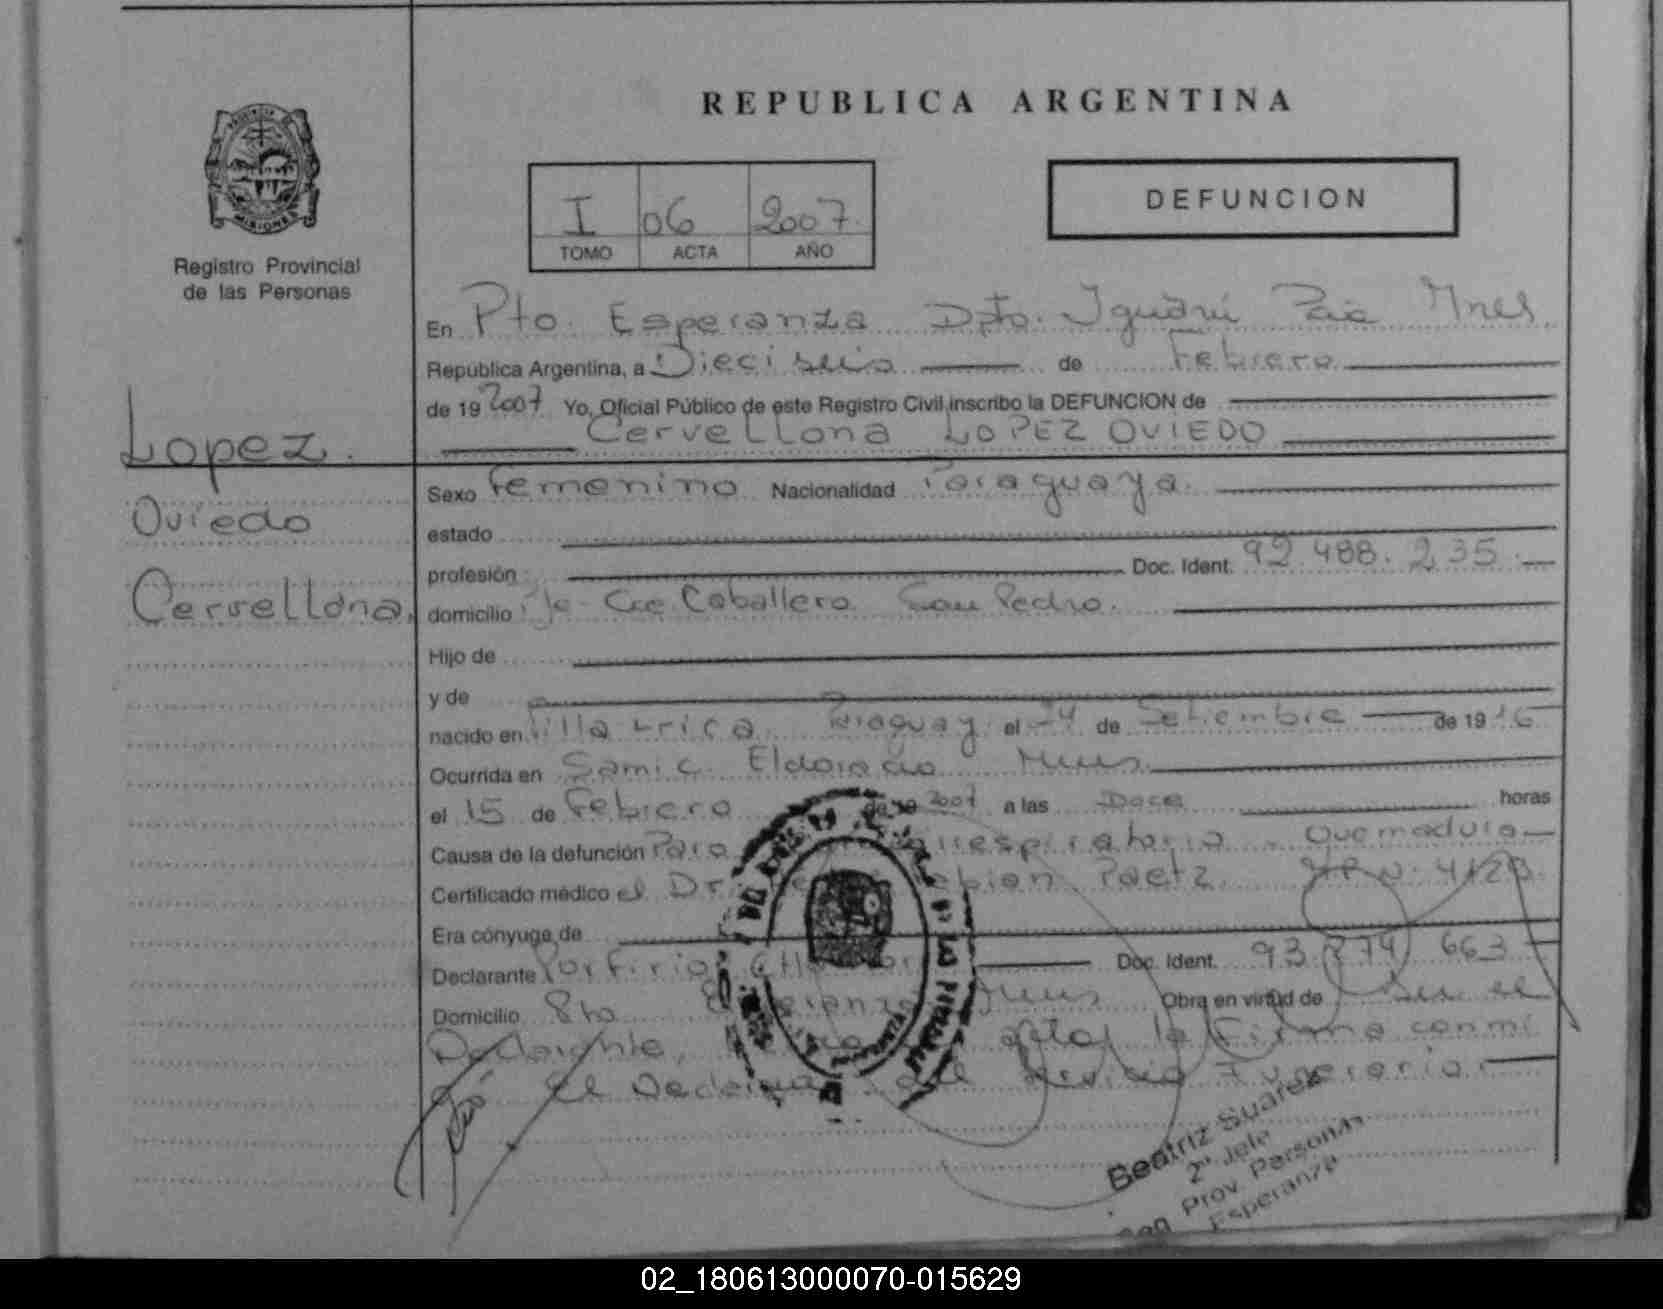 REPUBLICA ARGENTINA
PROVINCIA DE
MISIONES
Registro Provincial
de las Personas
I 06 2007
TOMO ACTA AÑO
DEFUNCION
Lopez.
Oviedo
Cervellona.
En Pto. Esperanza Dpto. Iguazú Mnes
Republica Argentina, a Dieciseis de Febrero
de 19 2007 Yo, Oficial Público de este Registro Civil inscribo la DEFUNCION de
Cervellona LOPEZ OVIEDO
Sexo Femenino Nacionalidad Paraguaya.
estado
profesión Doc. Ident. 92.488.235.
domicilio Caballero San Pedro.
Hijo de
y de
nacido en Villa Rrica Paraguay el 24 de Setiembre de 19 16
Ocurrida en Samic Eldorado Mnes.
el 15 de Febrero de 19 2007 a las Doce horas
Causa de la defunción Paro rrespiratorio Quemadura
Certificado médico el Dr. Paetz M.P.N: 4123
Era cónyuge de
Declarante Porfirio Doc. Ident. 93.274.663
Domicilio Pto Mnes Obra en virtud de Ser el
Declarante, la Firma conmi
go el Declarante del Servicio Funerario.
Beatriz Suarez
2º Jefe
Prov. Person
Esperanza
02_180613000070-015629